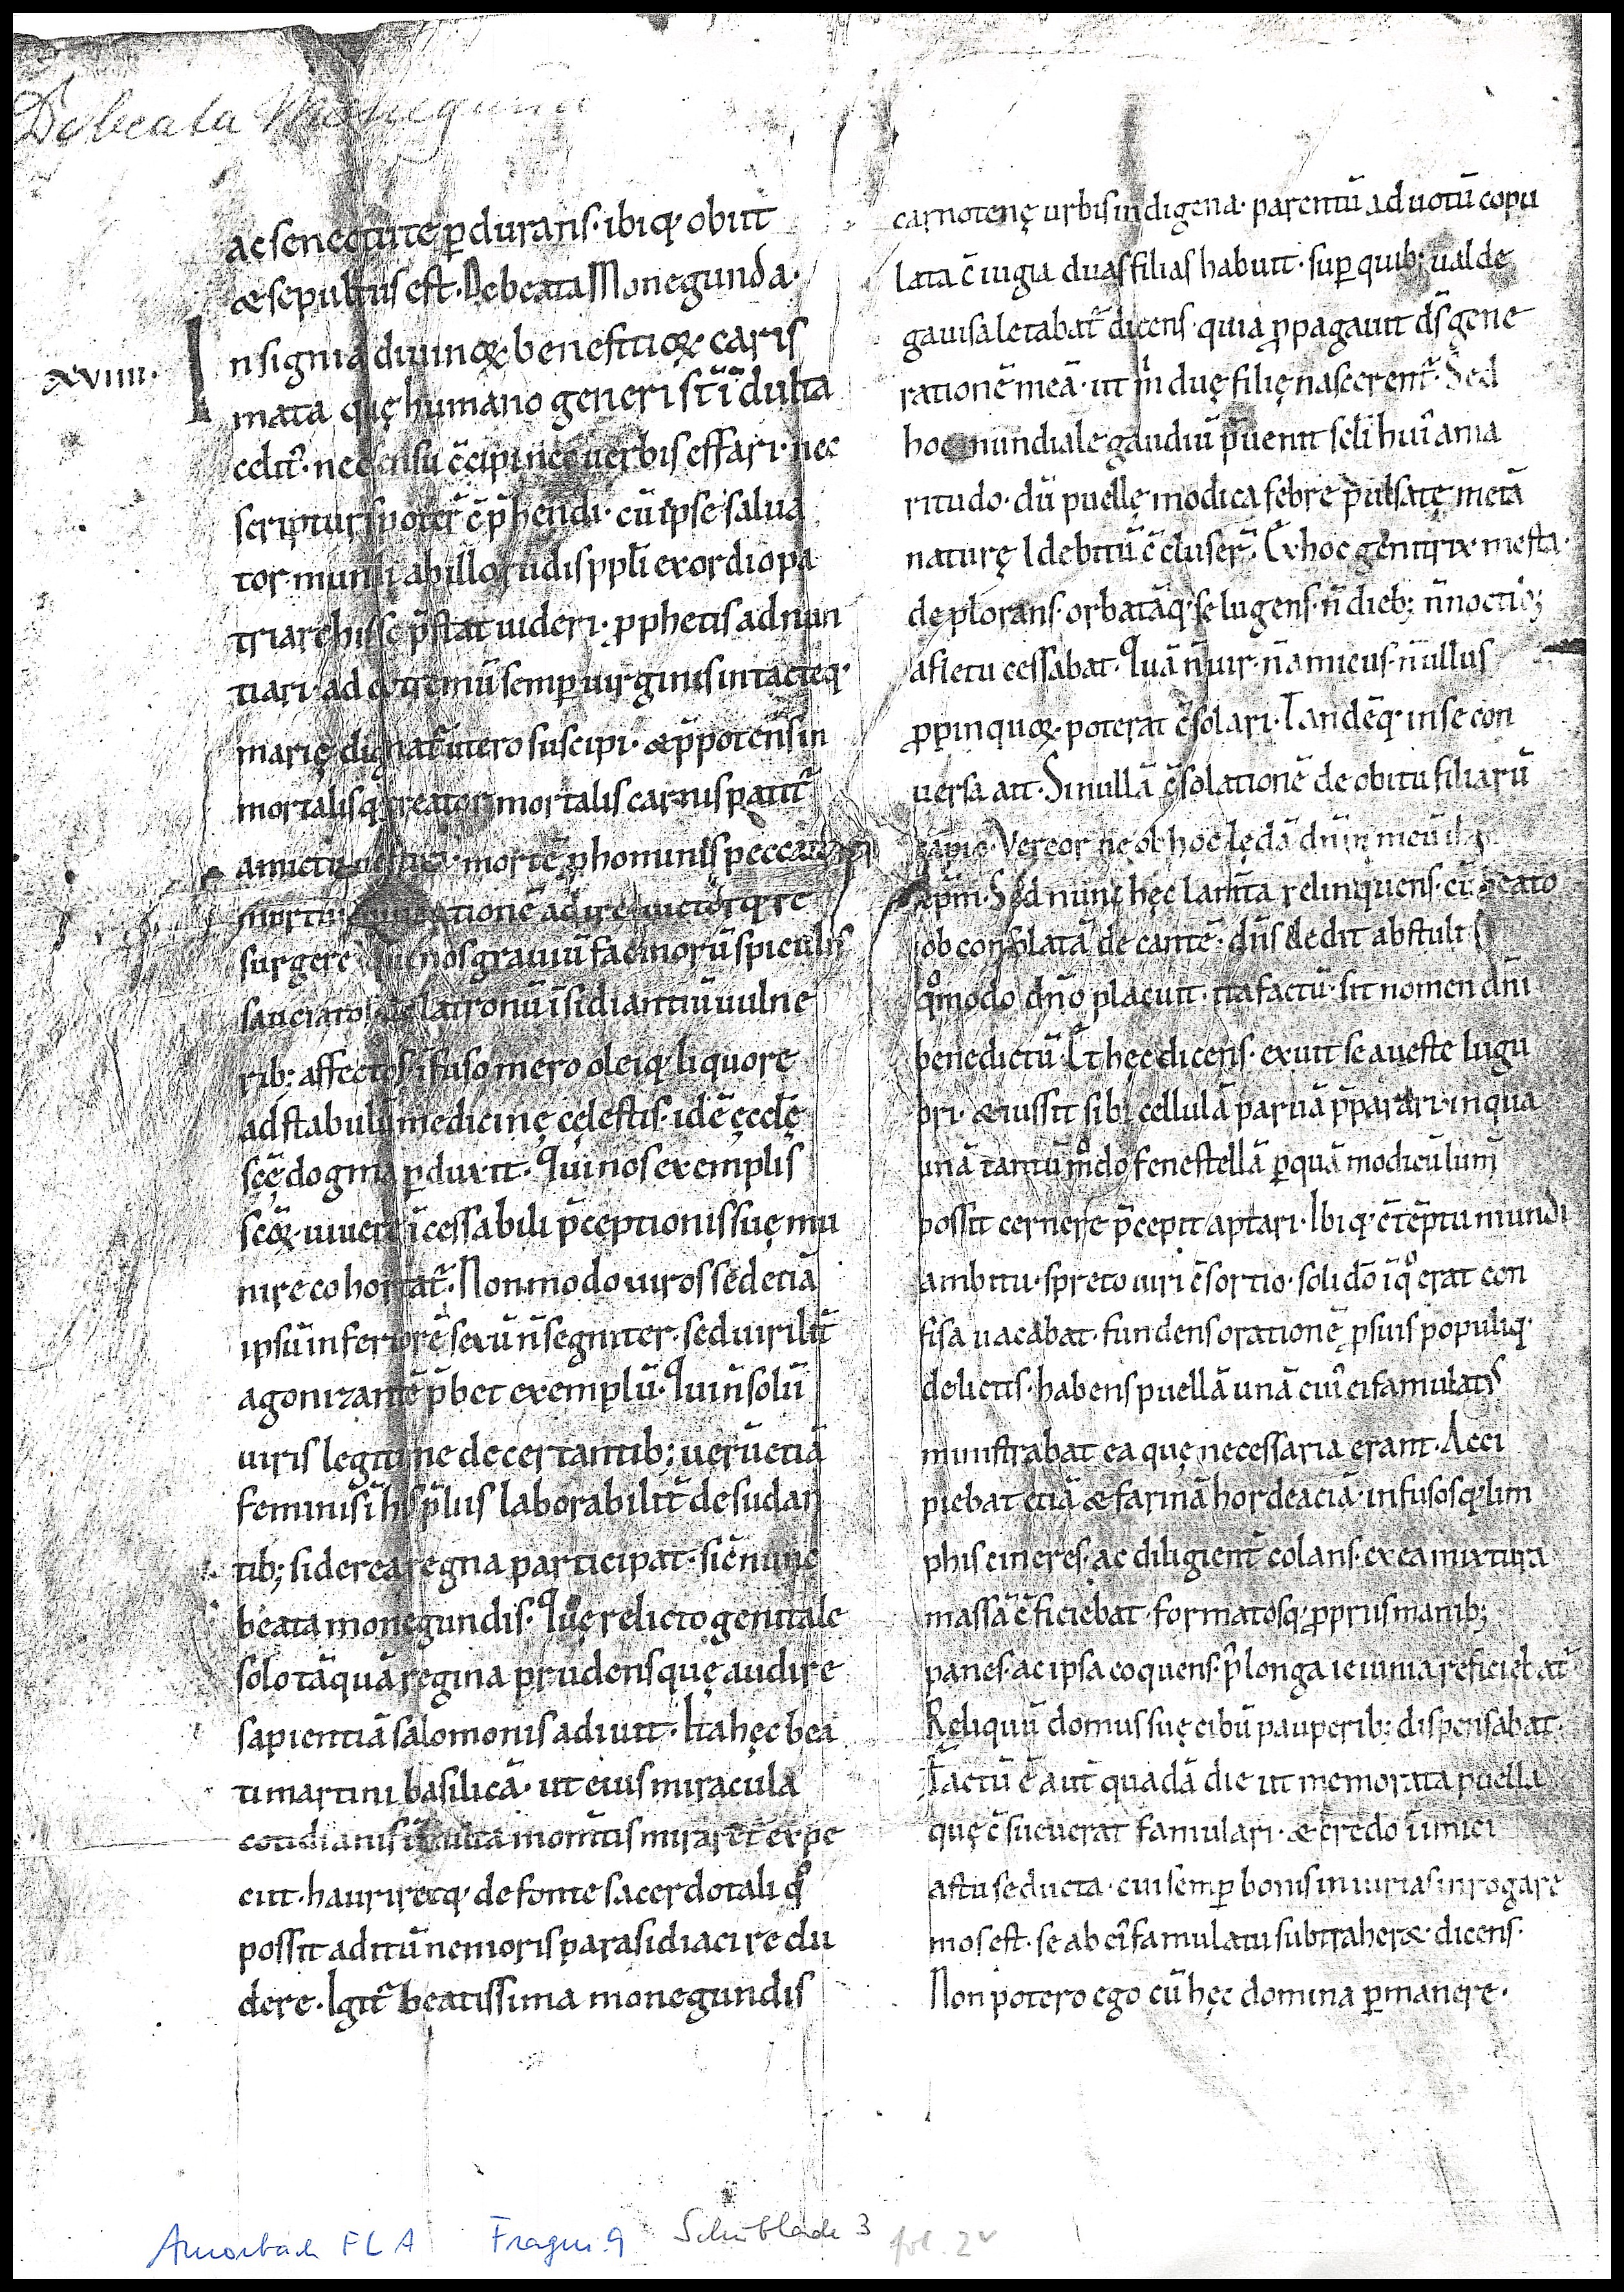 De beata Monegund
ac senectute ꝑdurans · ibiq; obiit
& sepultus est · De beata Monegunda ·
xviiii ·
Insignia diuinoꝝ benefitioꝝ caris
mata quę humano generi st̄ ī dulta
celit᷑ · nec sensu c̄cipi nec uerbis effari · nec
scripturis poter̄ c̄p̄hendi · cū ipse salua
tor mundi ab illo rudis ppłi exordio pa
triarchis se p̄stat uideri · ꝓphetis adnun
tiari · ad extremū semꝑ uirginis intacteq;
marię dignat᷑ utero suscipi · & p̄potens in
mortalisq; creator mortalis carnis patit᷑
amictu · mortē p hominis peccati
mortui tionē adire uictorq; re
surgere · Qui nos grauiū facinorū spiculis
sauciatos ac latronū īsidiantiū uulne
rib; affectos īfuso mero oleiq; liquore
ad stabulū medicinę cęlestis · idē ęcclę
scę̄ dogma ꝑduxit · Qui nos exemplis
scōꝝ · uiuere īcessabili p̄ceptionis suę mu
nire cohortat᷑ · Non modo uiros sed etiā
ipsū inferiorē sexū n̄ segniter · sed uirilit᷑
agonizantē p̄bet exemplū · Qui n̄ solū
uiris legitime decertantib; uerū etiā
feminis ī his p̄liis laborabilit᷑ desudan
tib; siderea regna participat · sic nunc
beata monegundis · Quę relicto genitale
solo tāquā regina prudens quę audire
sapientiā salomonis adiuit · Ita hęc bea
ti martini basilicā · ut eius miracula
cotidianis īdulta momtis miraret᷑ expe
ciit · hauriretq; de fonte sacerdotali qͦ
possit aditū nemoris parasidiaci re du
dere · Igit᷑ beatissima monegundis
carnotenę urbis indigena · parentū ad uotū copu
lata c̄iugia duas filias habuit · suꝑ quib; ualde
gauisa letabat᷑ dicens · quia ꝓpagauit ds̄ gene
rationē meā · ut m̄ duę filię nascerent᷑ · Sed
hoc mundiale gaudiū p̄uenit scłi hui᷒ ama
ritudo · dū puellę modica febre pulsatę metā
naturę ł debitū c̄cluser̄ · Ex hoc genitrix mesta ·
deplorans · orbatāq; se lugens · n̄ dieb; n̄ noctib;
a fletu cessabat · Quā n̄ uir · n̄ amicus · n̄ ullus
ꝓpinquoꝝ poterat c̄solari · Tandēq; in se con
uersa ait · Si nullā c̄solationē de obitu filiarū
capio · Vereor ne ob hoc lędā dn̄m meū
xp̄m · Sed nunc hęc lam̄ta relinquens · cū beato
iob consolatā decantē · dn̄s dedit abstulit
qͦmodo dn̄o placuit · ita factū · sit nomen dn̄i
benedictū · Et hęc dicens · exuit se a ueste lugu
bri · & iussit sibi cellulā paruā p̄parari · in qua
unā tantūmͦdo fenestellā ꝑ quā modicū lum̄
possit cernere p̄cepit aptari · Ibiq; c̄tēptu mundi
ambitu · spreto uiri c̄sortio · soli dō ī qͦ erat con
fisa uacabat · fundens orationē ꝓ suis populiq;
delictis · habens puellā unā cui᷒ ei famulatꝰ
ministrabat ea quę necessaria erant · Acci
piebat etiā & farinā hordeaciā · infusosq; lim
phis cineres · ac diligient᷑ colans · ex ea mixtura
massā c̄ficiebat · formatosq; ꝓpriis manib;
panes · ac ipsa coquens · p̄ longa ieiunia reficiebat᷑
Reliquū domus suę cibū pauperib; dispensabat ·
Factū ē aut̄ quadā die ut memorata puella
quę c̄sueuerat famulari · & credo īimici
astu seducta · cui semꝑ bonis iniurias inrogare
mos est · se ab ei᷒ famulatu subtraher& · dicens ·
Non potero ego cū hęc domina ꝑmanere ·
Amorbach FLA Fragm. 9 Schublade 3 fol. 2v